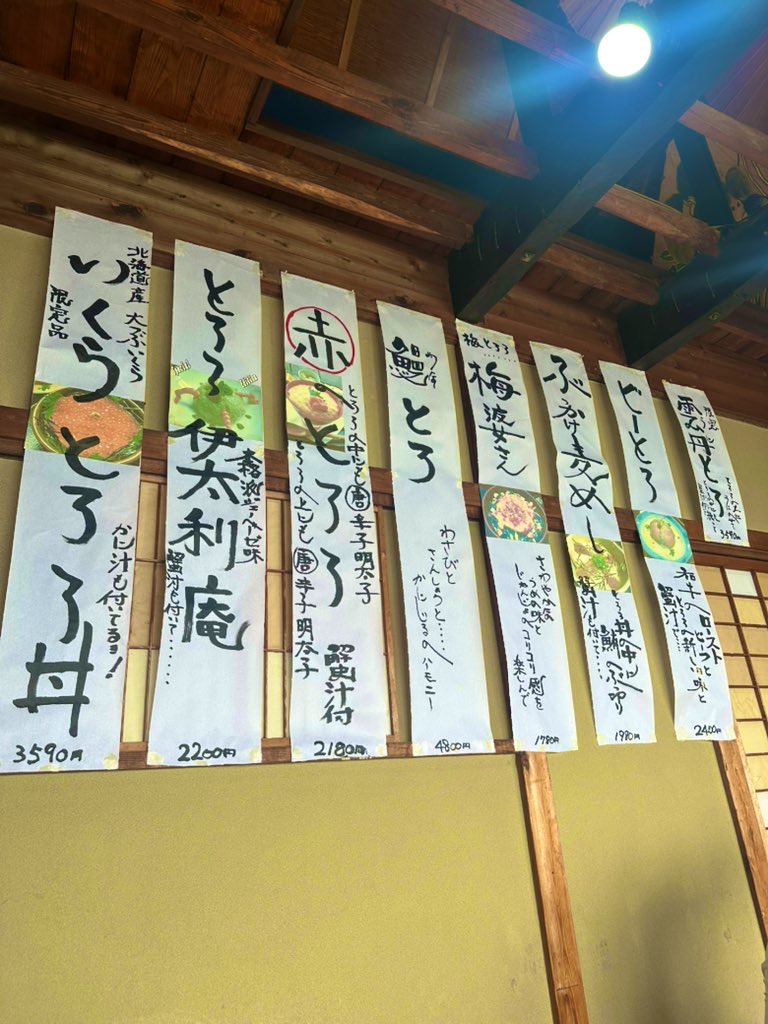 限定
雲丹とろ
3590円
びーとろ
若干のローストびーつと
とろろの新しい味と
蟹汁で…
2400円
ぶっかけ麦めし
とろろ丼の中に
鯛のへぶり
蟹汁も付いて……
1980円
梅とろろ……
梅婆さん
さわやかな
うめの味と
じゃんじゃこ
コリコリ感を
楽しんで
1780円
鰻とろ
わさびと
さんしょうと……
かにじるのハーモニー
4800円
赤のとろろ
とろろの中にも唐辛子明太子
とろろの上にも唐辛子明太子
蟹汁付
2180円
とろろ伊太利庵
ジェノベーゼ味
蟹汁も付いて……
2200円
北海道産大ぶいくら
いくらとろろ丼
限定品
かに汁も付いてるヨ!
3590円